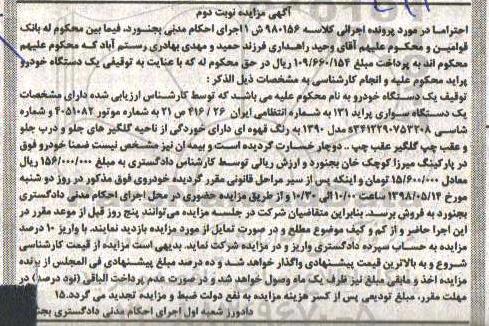 آگهی مزایده نوبت دوم
احتراما در مورد پرونده اجرائی کلاسه ۹۸۰۱۵۶ ش ۱اجرای احکام مدنی بجنورد، فیما بین محکوم له بانک
قوامین و محکوم علیهم آقای وحید راهداری فرزند حمید و مهدی بهادری رستم آباد که محکوم علیهم
محکوم اند به پرداخت مبلغ ۱۰۹/۶۶۰/۱۵۴ ریال در حق محکوم له که با عنایت به توقیفی یک دستگاه خودرو
پراید محکوم علیه و انجام کارشناسی به مشخصات ذیل الذکر :
توقیف یک دستگاه خودرو به نام محکوم علیه می باشد که توسط کارشناس ارزیابی شده دارای مشخصات
یک دستگاه سواری پراید ۱۳۱ به شماره انتظامی ایران ۲۶ / ۴۱۶ ص ۲۱ به شماره موتور ۴۰۵۱۰۸۲ و شماره
شاسی S۳۴۱۲۲۹۰۷۵۳۲۰۸ مدل ۱۳۹۰ به رنگ قهوه ای دارای خوردگی از ناحیه گلگیر های جلو و درب جلو
و عقب چپ گلگیر عقب چپ .. دوچار خسارت گردیده است و بیمه ان نیز مشخص نیست ضمنا خودرو فوق
در پارکینگ میرزا کوچک خان بجنورد و ارزش ریالی توسط کارشناس دادگستری به مبلغ ۱۵۶/۰۰۰/۰۰۰ ریال
معادل ۱۵/۶۰۰/۰۰۰ تومان و اینکه پس از سیر مراحل قانونی مقرر گردیده خودروی فوق مذکور در روز دو شنبه
مورخ ۱۳۹۸/۰۵/۱۴ ساعت ۱۰/۰۰ الی ۱۰/۳۰ و از طریق مزایده حضوری در محل اجرای احکام مدنی دادگستری
بجنورد به فروش برسد. بنابراین متقاضیان شرکت در جلسه مزایده می توانند پنج روز قبل از موعد مقرر در
این اجرا حاضر و از کم و کیف موضوع مطلع و در صورت تمایل از مورد مزایده بازدید نمایند. با واریز ۱۰ درصد
مزایده به حساب سپرده دادگستری واریز و در مزایده شرکت نماید. بدیهی است مزایده از قیمت کارشناسی
شروع و به بالاترین قیمت پیشنهادی واگذار خواهد شد و ده درصد مبلغ پیشنهادی فی المجلس از برنده
مزایده اخذ و مابقی مبلغ نیز ظرف یک ماه وصول خواهد شد و در صورت عدم پرداخت الباقی (نود درصد) در
مهلت مقرر، مبلغ تودیعی پس از کسر هزینه مزایده به نفع دولت ضبط و مزایده تجدید می گردد. ۱۵
دادورز شعبه اول اجرای احکام مدنی دادگستری